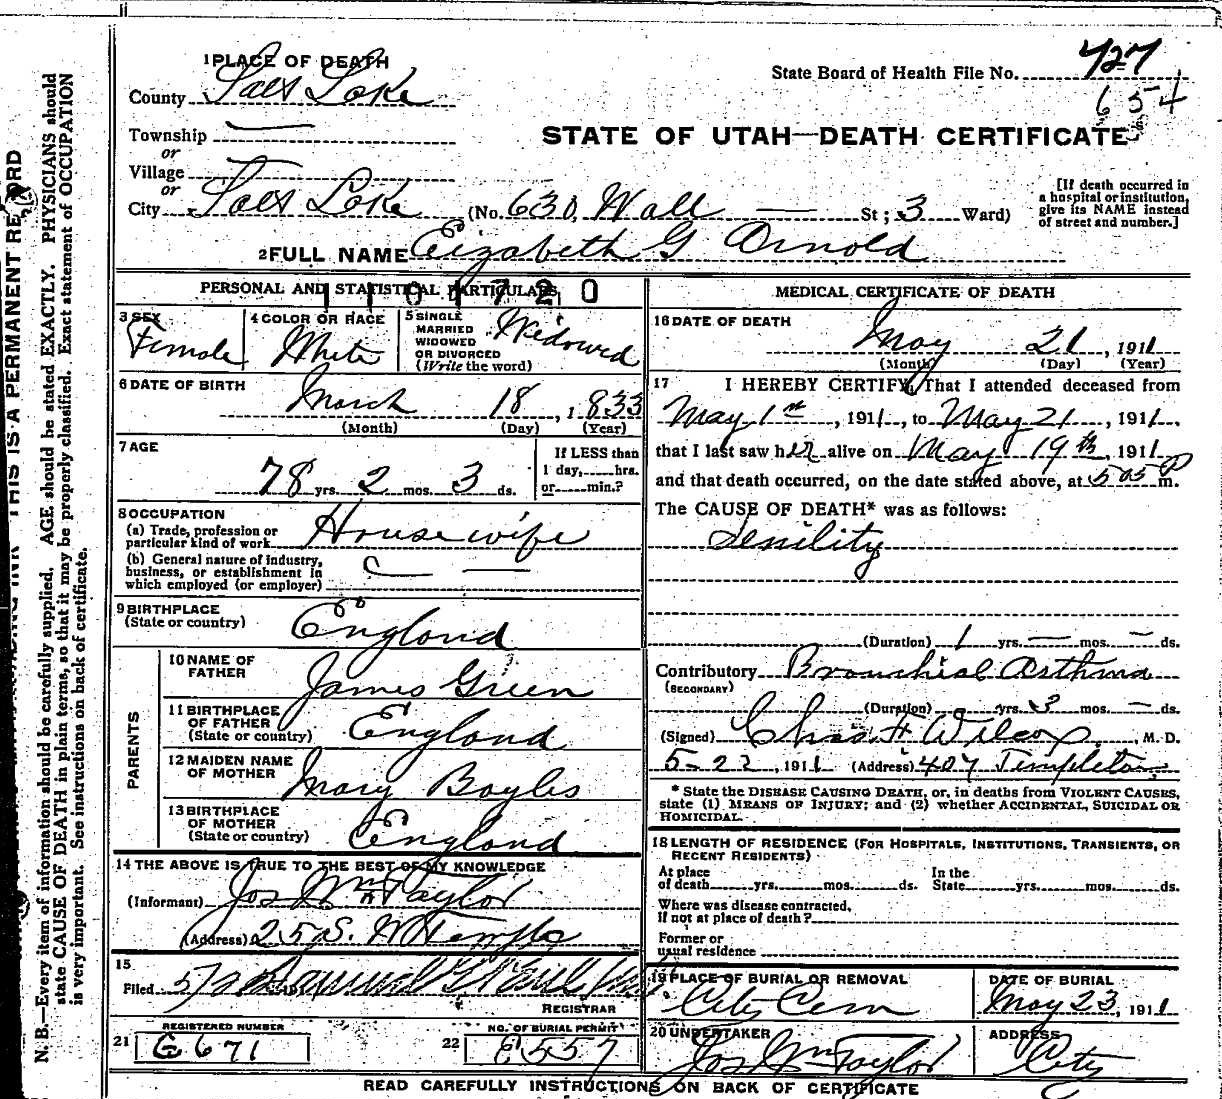 1 PLACE OF DEATH
County Salt Lake
State Board of Health File No. 427
654
Township
or
Village
or
City Salt Lake (No. 630 Wall St; 3 Ward)
STATE OF UTAH—DEATH CERTIFICATE
[If death occurred in
a hospital or institution,
give its NAME instead
of street and number.]
2 FULL NAME Elizabeth G Arnold
PERSONAL AND STATISTICAL PARTICULARS
1104720
3 SEX
Female
4 COLOR OR RACE
White
5 SINGLE
MARRIED
WIDOWED
OR DIVORCED
(Write the word)
Widowed
6 DATE OF BIRTH
March 18, 1833
(Month) (Day) (Year)
7 AGE
78 yrs. 2 mos. 3 ds.
If LESS than
1 day, hrs.
or min.?
8 OCCUPATION
(a) Trade, profession or
particular kind of work Housewife
(b) General nature of industry,
business, or establishment in
which employed (or employer)
9 BIRTHPLACE
(State or country) England
PARENTS
10 NAME OF
FATHER James Green
11 BIRTHPLACE
OF FATHER
(State or country) England
12 MAIDEN NAME
OF MOTHER Mary Bayles
13 BIRTHPLACE
OF MOTHER
(State or country) England
14 THE ABOVE IS TRUE TO THE BEST OF MY KNOWLEDGE
(Informant) Jos Wm Taylor
(Address) 25 S. W Temple
15
Filed
REGISTRAR
REGISTERED NUMBER
21 G671
NO. OF BURIAL PERMIT
22 E557
MEDICAL CERTIFICATE OF DEATH
16 DATE OF DEATH
May 21, 1911
(Month) (Day) (Year)
17 I HEREBY CERTIFY, That I attended deceased from
May 1st, 1911, to May 21, 1911,
that I last saw her alive on May 19th, 1911
and that death occurred, on the date stated above, at 5 05 P m.
The CAUSE OF DEATH* was as follows:
Senility
(Duration) 1 yrs. — mos. — ds.
Contributory Bronchial Asthma
(SECONDARY)
(Duration) yrs. 3 mos. — ds.
(Signed) Chas F Wilcox, M. D.
5-22, 1911 (Address) 407 Templeton
* State the DISEASE CAUSING DEATH, or, in deaths from VIOLENT CAUSES,
state (1) MEANS OF INJURY; and (2) whether ACCIDENTAL, SUICIDAL OR
HOMICIDAL.
18 LENGTH OF RESIDENCE (FOR HOSPITALS, INSTITUTIONS, TRANSIENTS, OR
RECENT RESIDENTS)
At place
of death yrs. mos. ds.
In the
State yrs. mos. ds.
Where was disease contracted,
If not at place of death?
Former or
usual residence
19 PLACE OF BURIAL OR REMOVAL
City Cem
DATE OF BURIAL
May 23, 1911
20 UNDERTAKER
Jos Wm Taylor
ADDRESS
City
READ CAREFULLY INSTRUCTIONS ON BACK OF CERTIFICATE
THIS IS A PERMANENT RECORD
N. B.—Every item of information should be carefully supplied. AGE should be stated EXACTLY. PHYSICIANS should
state CAUSE OF DEATH in plain terms, so that it may be properly classified. Exact statement of OCCUPATION
is very important. See instructions on back of certificate.